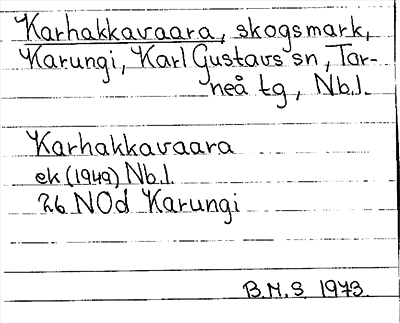 Karhakkavaara, skogsmark,
Karungi, Karl Gustavs sn, Tor-
neå tg, Nb.l.
Karhakkavaara
ek (1949) Nb.l.
26 NOd Karungi
B.M.S. 1973.